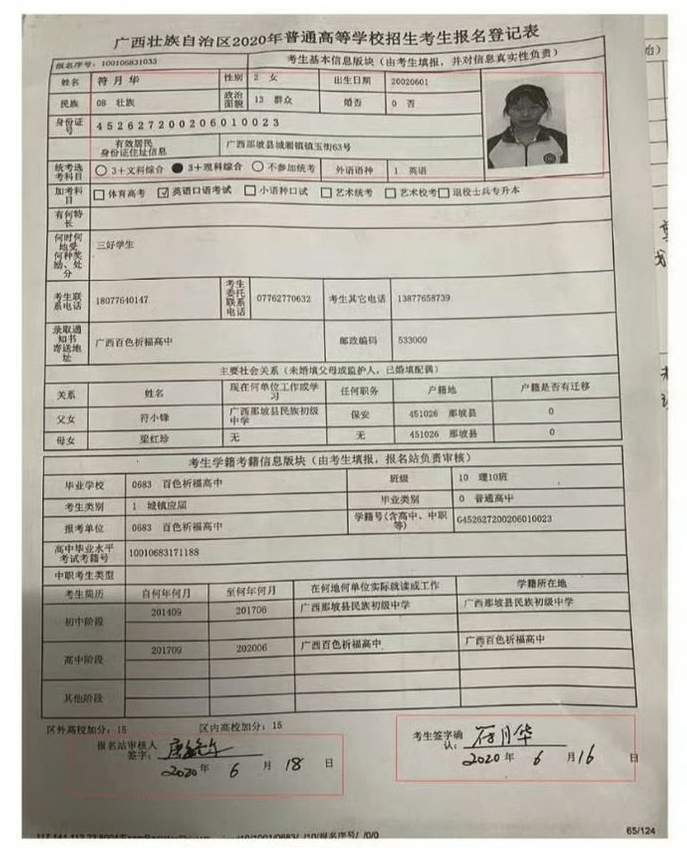 广西壮族自治区2020年普通高等学校招生考生报名登记表
报名序号: 100106831033 考生基本信息版块（由考生填报，并对信息真实性负责）
姓名 符月华 性别 2 女 出生日期 20020601
民族 08 壮族 政治面貌 13 群众 婚否 0 否
身份证号 452627200206010023
有效居民身份证住址信息 广西那坡县城厢镇镇玉街63号
统考选考科目 ○ 3+文科综合 ● 3+理科综合 ○ 不参加统考 外语语种 1 英语
加考科目 □ 体育高考 ☑ 英语口语考试 □ 小语种口试 □ 艺术统考 □ 艺术校考 □ 退役士兵专升本
有何特长
何时何地受何种奖励、处分 三好学生
考生联系电话 18077640147 考生委托联系电话 07762770632 考生其它电话 13877658739
录取通知书寄送地址 广西百色祈福高中 邮政编码 533000
主要社会关系（未婚填父母或监护人，已婚填配偶）
关系 姓名 现在何单位工作或学习 任何职务 户籍地 户籍是否有迁移
父女 符小锋 广西那坡县民族初级中学 保安 451026 那坡县 0
母女 梁红珍 无 无 451026 那坡县 0
考生学籍考籍信息版块（由考生填报，报名站负责审核）
毕业学校 0683 百色祈福高中 班级 10 理10班
考生类别 1 城镇应届 毕业类别 0 普通高中
报考单位 0683 百色祈福高中 学籍号(含高中、中职等) G452627200206010023
高中毕业水平考试考籍号 10010683171188
中职考生类型
考生简历 自何年何月 至何年何月 在何地何单位实际就读或工作 学籍所在地
初中阶段 201409 201706 广西那坡县民族初级中学 广西那坡县民族初级中学
高中阶段 201709 202006 广西百色祈福高中 广西百色祈福高中
其他阶段
区外高校加分: 15 区内高校加分: 15
报名站审核人签字: 考生签字确认: 符月华
2020年 6 月 18 日 2020年 6 月 16 日
65/124